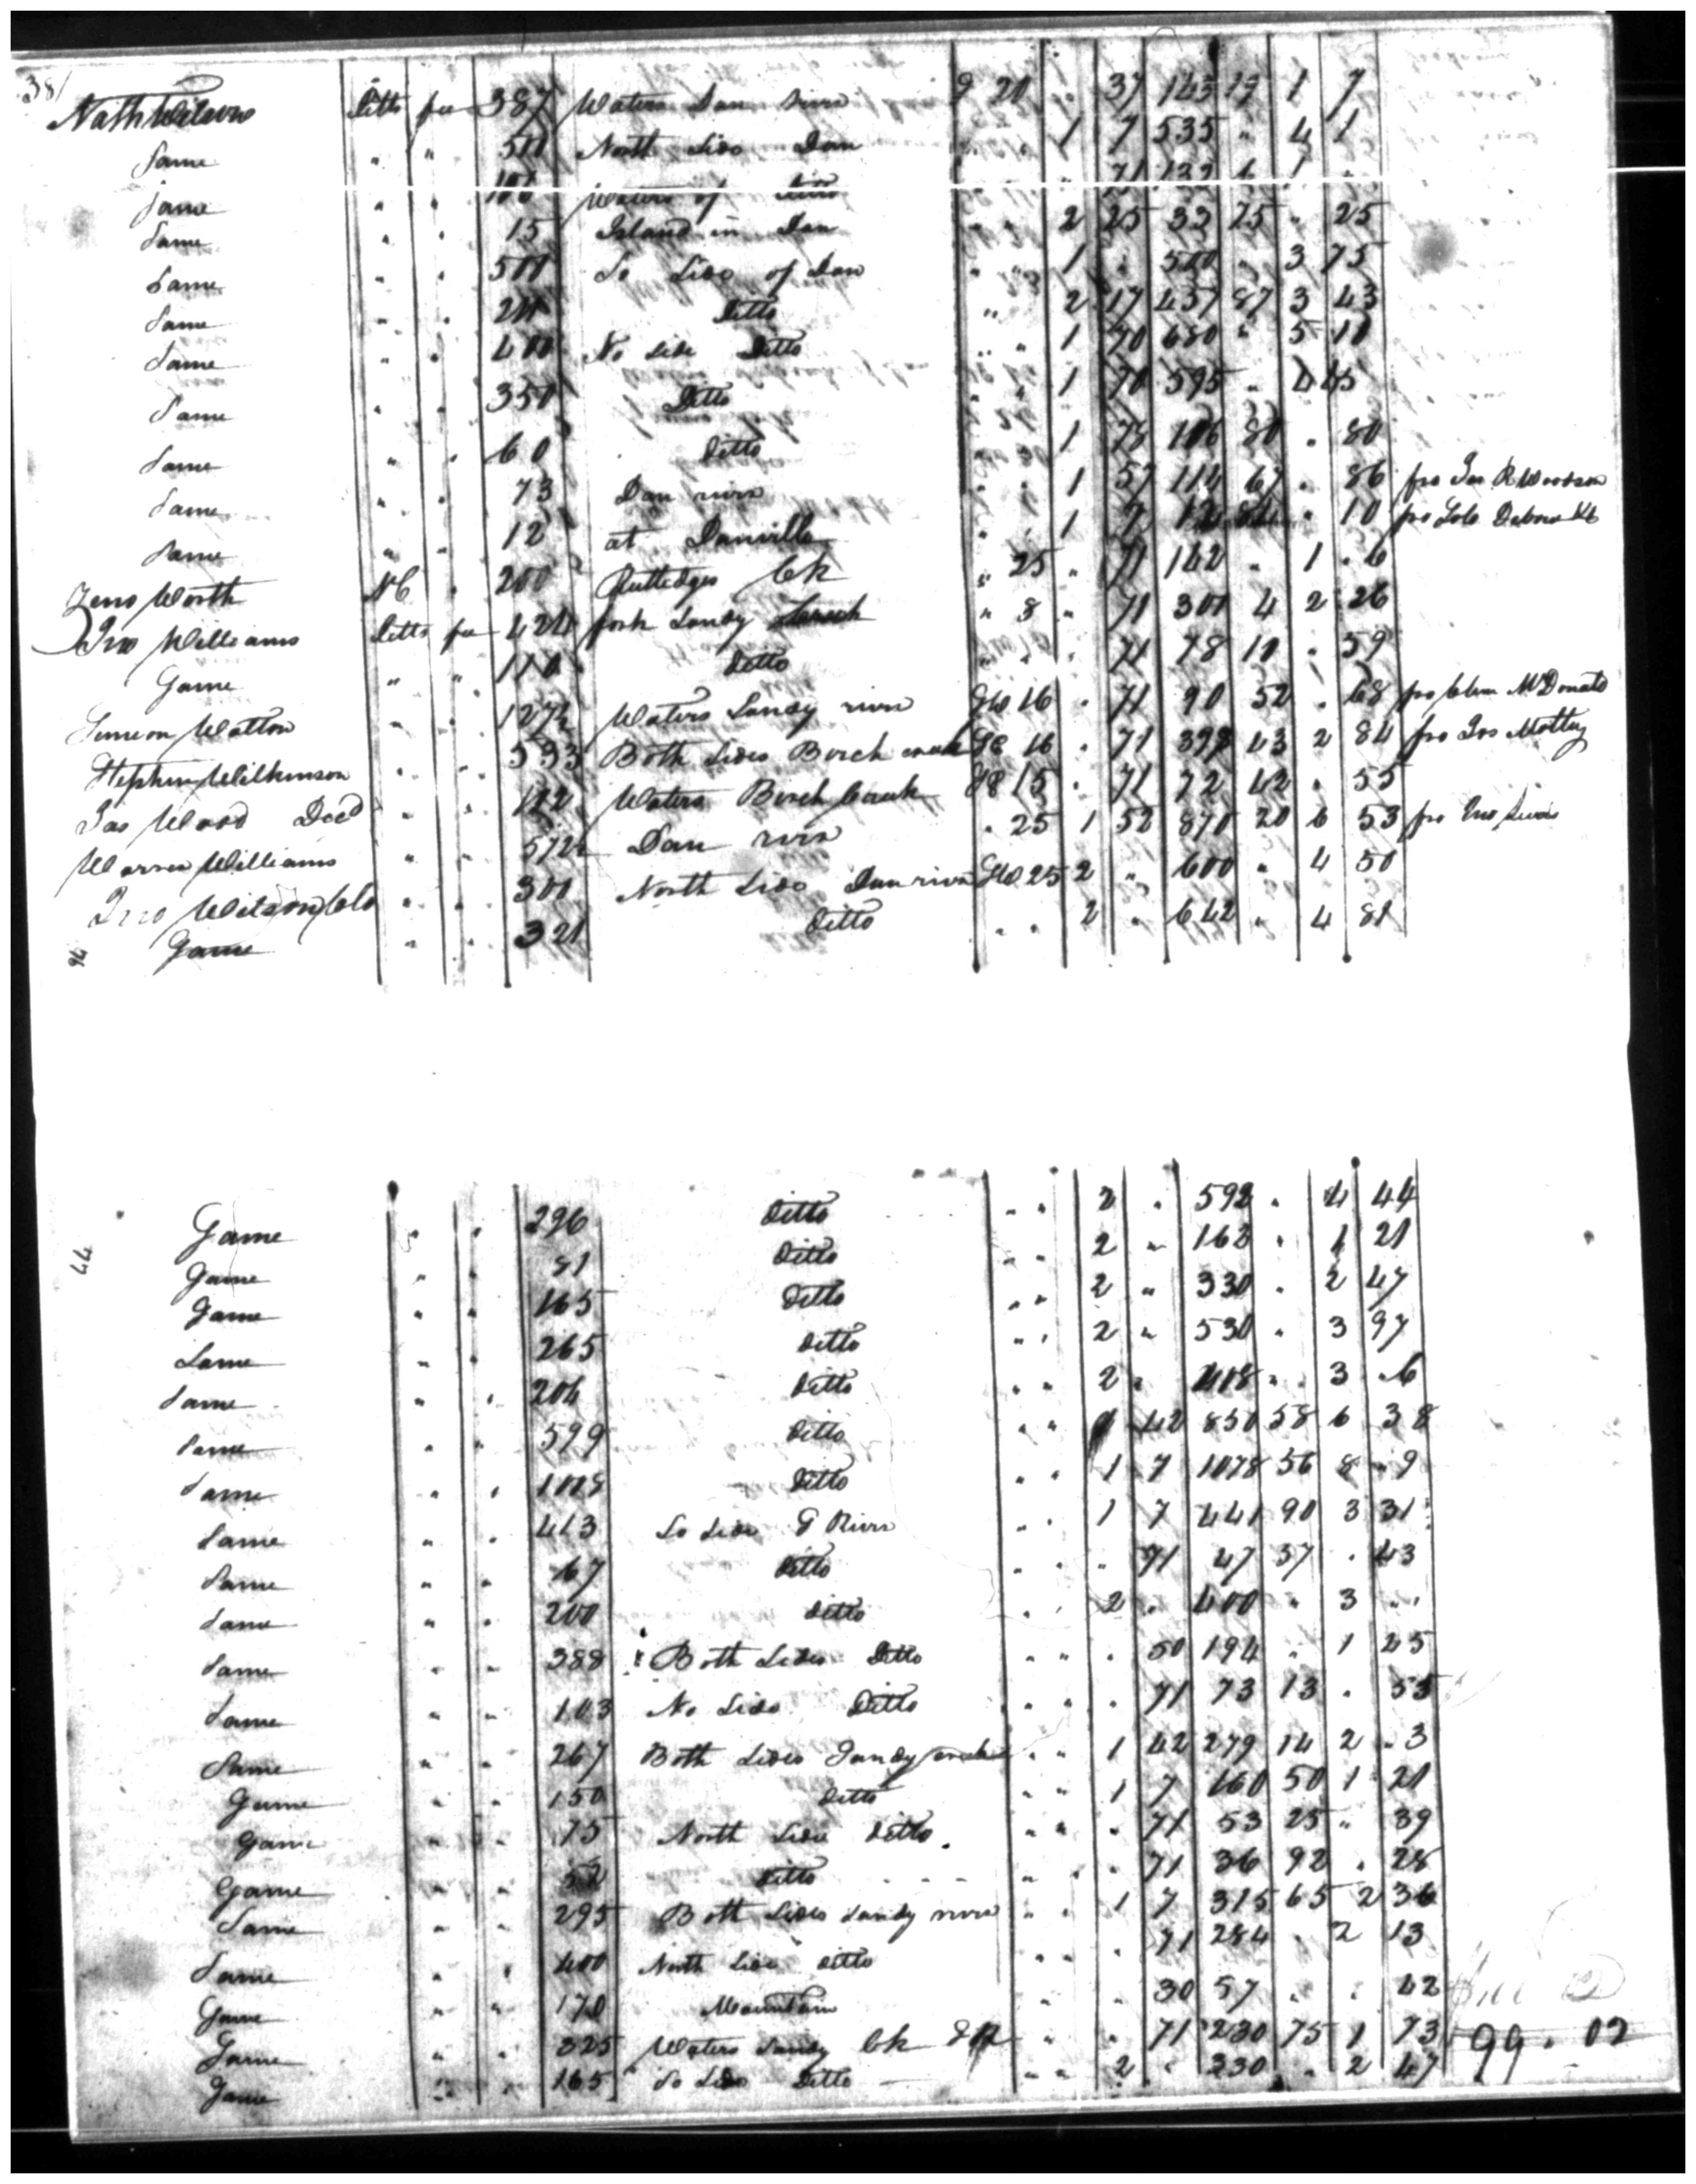 38
Nath Wilson Ditto fee 387 Waters Dan River 9 20 " 37 143 19 1 7
Same " " 500 North Side Dan " " 1 7 535 " 4 1
Same " " 100 Waters of Ditto " " 71 132 6 1 "
Same " " 15 Island in Dan " " 2 25 33 75 " 25
Same " " 500 So Side of Dan " " 1 " 500 " 3 75
Same " " Ditto " " 2 17 457 87 3 43
Same " " 400 No Side Ditto " " 1 70 680 " 5 10
Same " " 350 Ditto " " 1 70 595 " 4 45
Same " " 60 Ditto " " 1 78 106 80 " 80
Same " " 73 Dan river " " 1 57 114 67 " 86 fro Jas R Woodson
Same " " 12 at Danville " " 1 7 12 84 " 10 fro
Zeno Worth NC " 200 Rutledges Ck " 25 " 71 142 " 1 6
Jno Williams Ditto fee 424 fork Sandy Creek " 8 " 71 301 4 2 26
Same " " 110 Ditto " " " 71 78 10 " 59
Simeon Walton " " 127½ Waters Sandy river SW 16 " 71 90 52 " 68 fro Clem McDonald
Stephen Wilkinson " " 593 Both Sides Birch creek 16 " 71 398 43 2 84 fro Jos Motley
Jas Wood Decd " " 102 Waters Birch Creek 15 " 71 72 42 " 55
Warner Williams " " 572½ Dan river " 25 1 52 870 20 6 53 fro Jno
Jno Wilson " " 300 North Side Dan river SW 25 2 " 600 " 4 50
Same " " 321 Ditto " " 2 " 642 " 4 81
Same " " 296 Ditto " " 2 " 592 " 4 44
Same " " 81 Ditto " " 2 " 162 " 1 21
Same " " 165 Ditto " " 2 " 330 " 2 47
Same " " 265 Ditto " " 2 " 530 " 3 97
Same " " 204 Ditto " " 2 " 408 " 3 6
Same " " 599 Ditto " " 1 42 850 58 6 38
Same " " 1008 Ditto " " 1 7 1078 56 8 9
Same " " 413 So Side D River " " 1 7 441 90 3 31
Same " " 67 Ditto " " " 71 47 57 " 43
Same " " 200 Ditto " " 2 " 400 " 3 "
Same " " 388 Both Sides Ditto " " " 50 194 " 1 45
Same " " 103 No Side Ditto " " " 71 73 13 " 55
Same " " 267 Both Sides Sandy creek " " 1 42 279 14 2 3
Same " " 150 Ditto " " 1 7 160 50 1 21
Same " " 75 North Side Ditto " " " 71 53 25 " 39
Same " " 52 Ditto " " " 71 36 92 " 28
Same " " 295 Both Sides Sandy river " " 1 7 315 65 2 36
Same " " 400 North Side Ditto " " " 71 284 " 2 13
Same " " 170 Mountain " " " 30 57 " " 42
Same " " 325 Waters Sandy Ck " " 71 230 75 1 73 99.02
Same " " 165 So Side Ditto " " 2 " 330 " 2 47